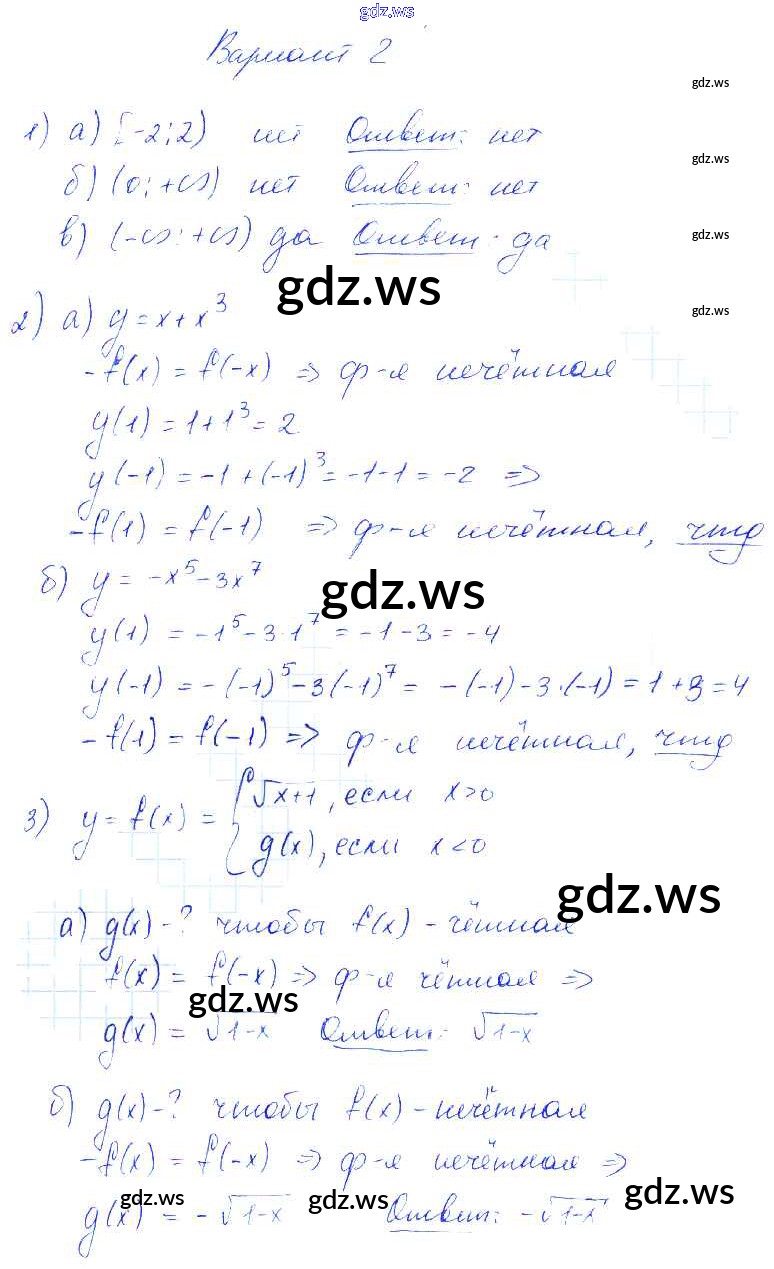 gdz.ws
Вариант 2
gdz.ws
1) а) [-2; 2) нет Ответ: нет
gdz.ws
б) (0; +∞) нет Ответ: нет
в) (-∞; +∞) да Ответ: да
gdz.ws
gdz.ws
gdz.ws
2) а) y = x + x³
-f(x) = f(-x) => ф-я нечётная
y(1) = 1 + 1³ = 2
y(-1) = -1 + (-1)³ = -1 - 1 = -2 =>
-f(1) = f(-1) => ф-я нечётная, чтд
б) y = -x⁵ - 3x⁷
gdz.ws
y(1) = -1⁵ - 3·1⁷ = -1 - 3 = -4
y(-1) = -(-1)⁵ - 3(-1)⁷ = -(-1) - 3·(-1) = 1 + 3 = 4
-f(1) = f(-1) => ф-я нечётная, чтд
3) y = f(x) = { √x+1, если x>0
g(x), если x<0
gdz.ws
а) g(x) - ? чтобы f(x) - чётная
f(x) = f(-x) => ф-я чётная =>
gdz.ws
g(x) = √1-x Ответ: √1-x
б) g(x) - ? чтобы f(x) - нечётная
-f(x) = f(-x) => ф-я нечётная =>
gdz.ws gdz.ws gdz.ws
g(x) = -√1-x Ответ: -√1-x